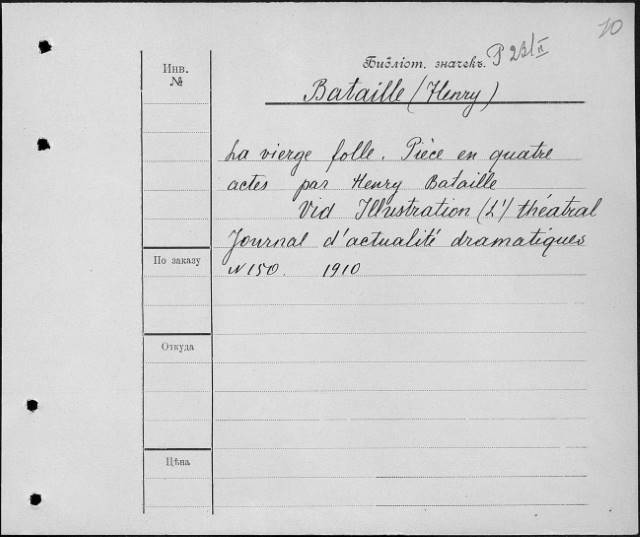 10
Инв. №
Библіот. значекъ. P 221/II
Bataille (Henry)
La vierge folle. Pièce en quatre
actes par Henry Bataille
Vid Illustration (L') théatral
Journal d'actualité dramatiques
N 150. 1910
По заказу
Откуда
Цѣна